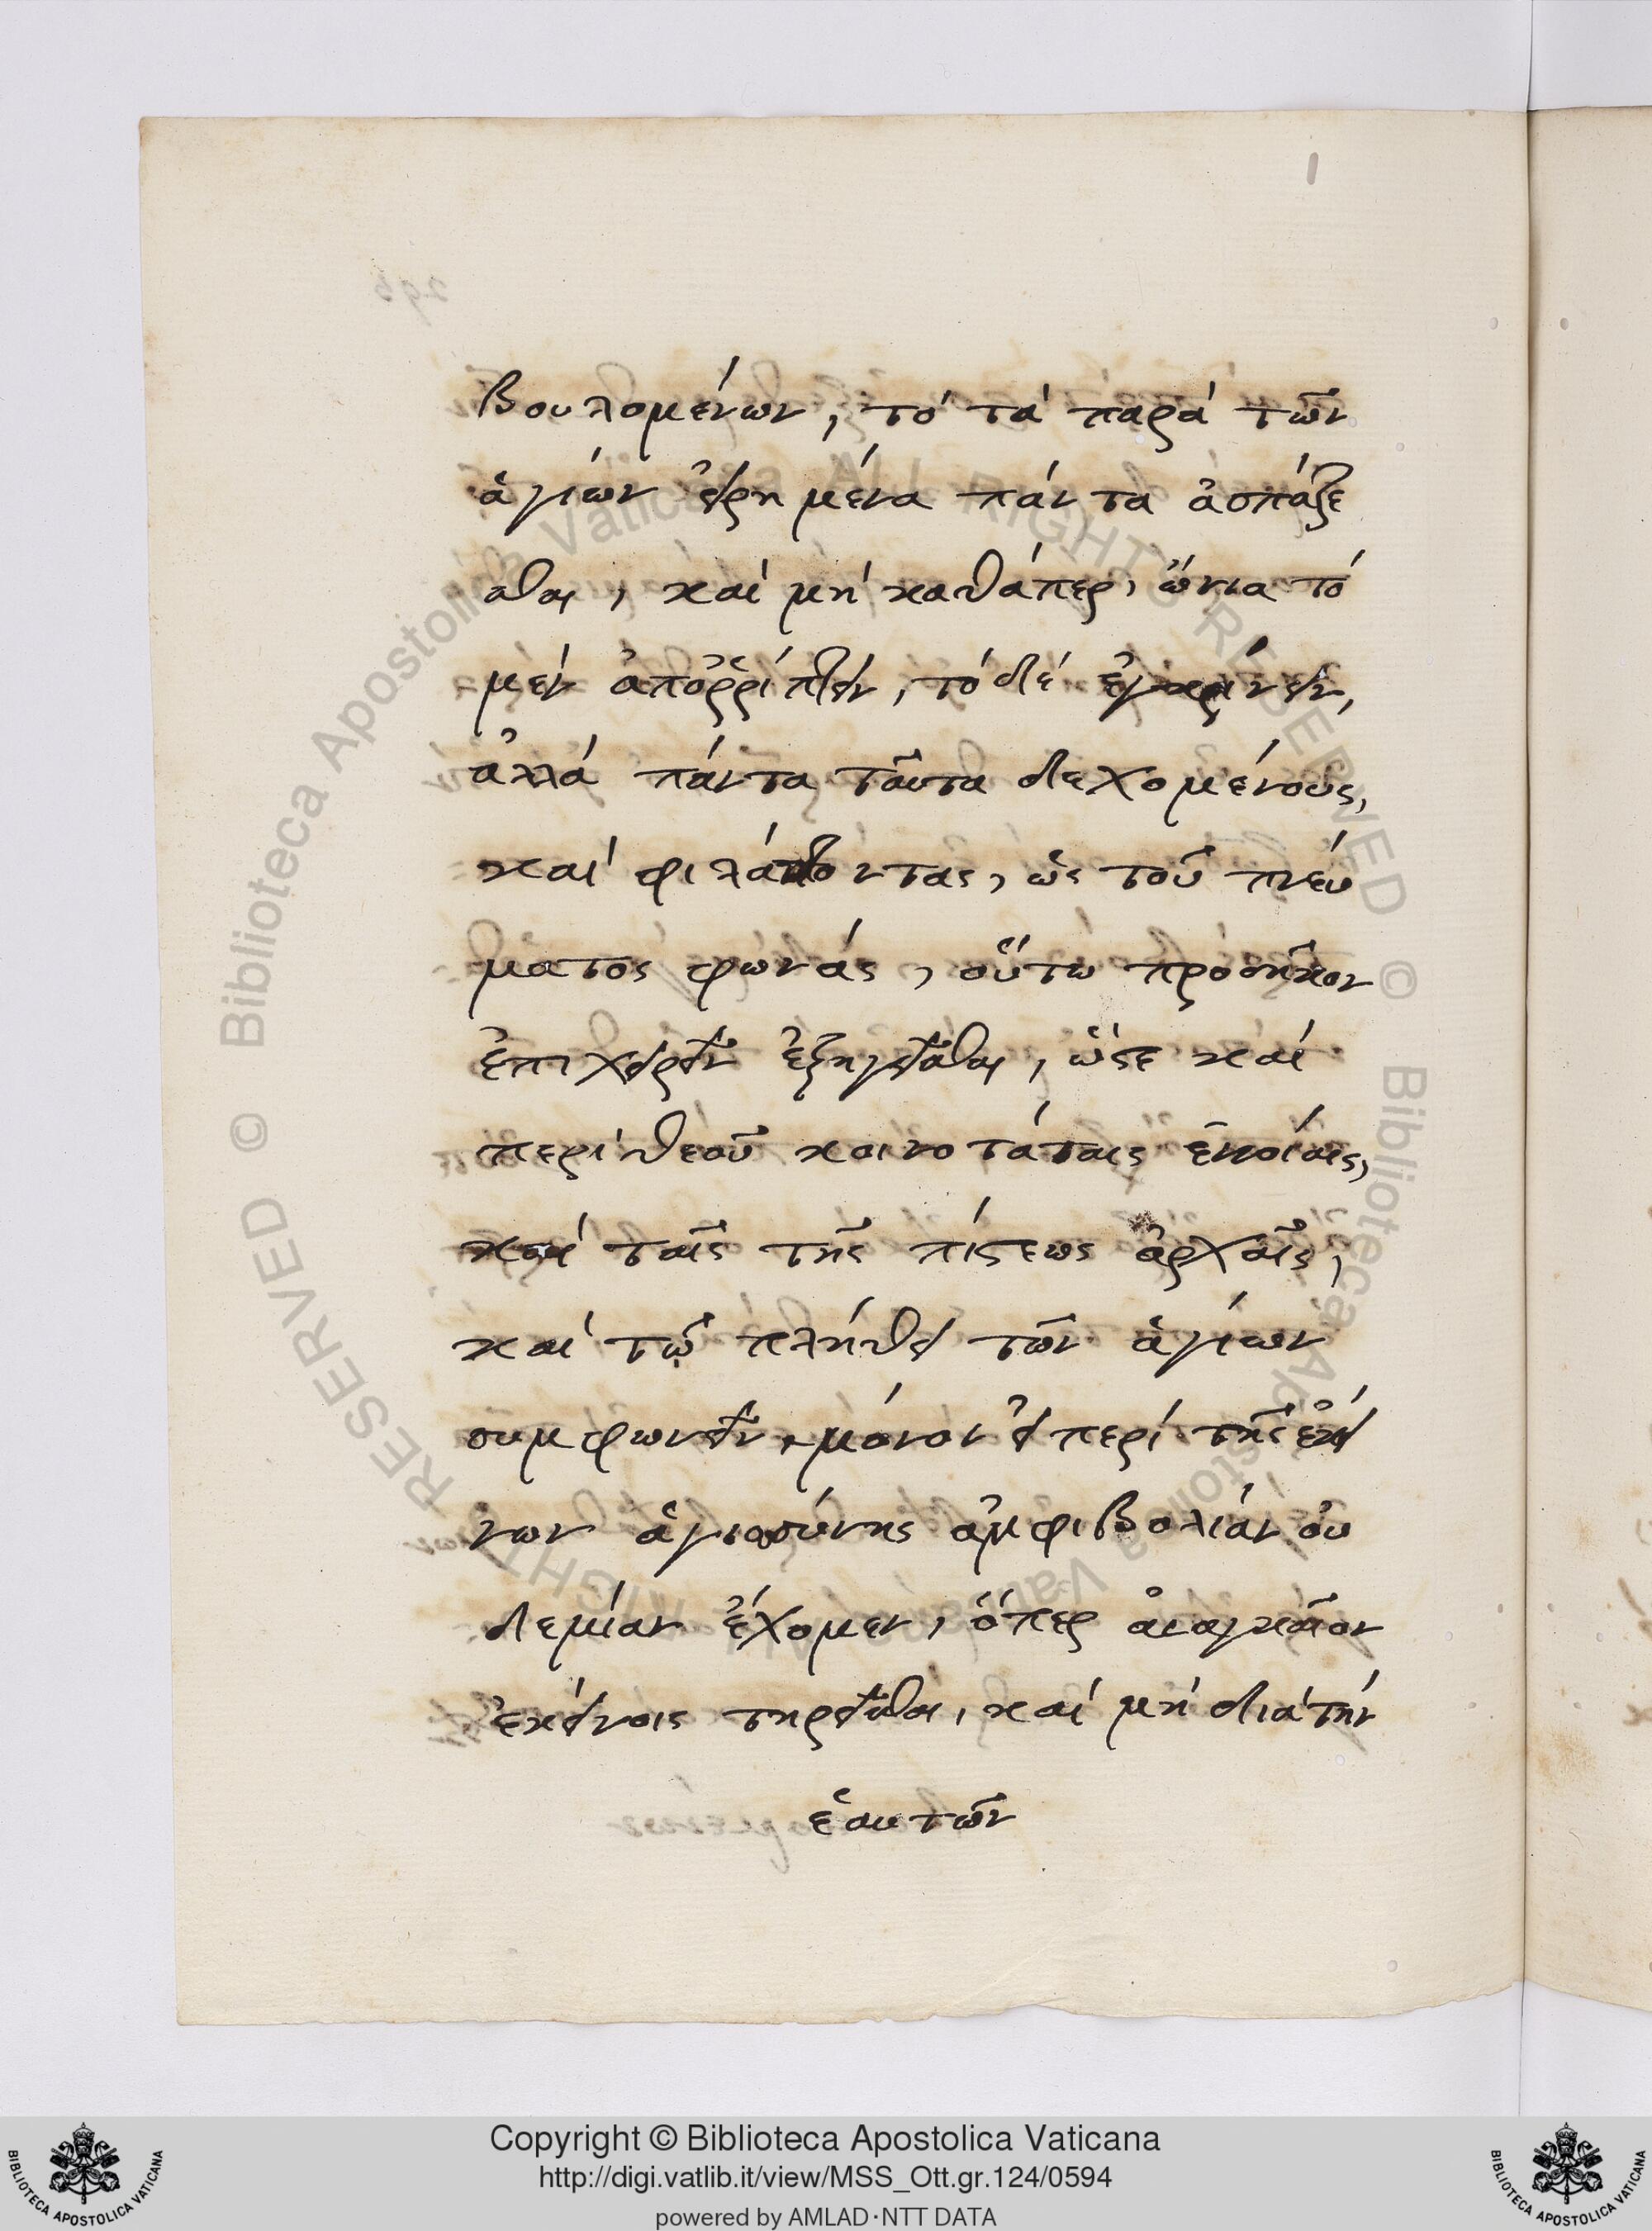 βουλομένων, τό τά παρά τῶν
ἁγίων εἰρημένα πάντα ἀσπάζε
σθαι, καί μή καθάπερ, ὤνια τό
μέν ἀποῤῥίπτειν, τό δέ ἐγκρίνειν,
ἀλλά πάντα ταῦτα δεχομένους,
καί φιλάττοντας, ὡς τοῦ πνεύ
ματος φωνάς, οὕτω προσῆκον
ἐπιχειρεῖν ἐξηγεῖσθαι, ὥστε καί
περί θεοῦ κοινοτάταις ἐννοίαις,
καί ταῖς τῆς πίστεως ἀρχαῖς,
καί τῷ πλήθει τῶν ἁγίων
συμφωνεῖν, μόνον εἰ περί τῆς ἐκεί
νων ἁγιοσύνης ἀμφιβολίαν οὐ
δεμίαν ἔχομεν, ὅπερ ἀναγκαῖον
ἐκείνοις τηρεῖσθαι, καί μή διά τήν
ἑαυτῶν
Copyright © Biblioteca Apostolica Vaticana
http://digi.vatlib.it/view/MSS_Ott.gr.124/0594
powered by AMLAD·NTT DATA